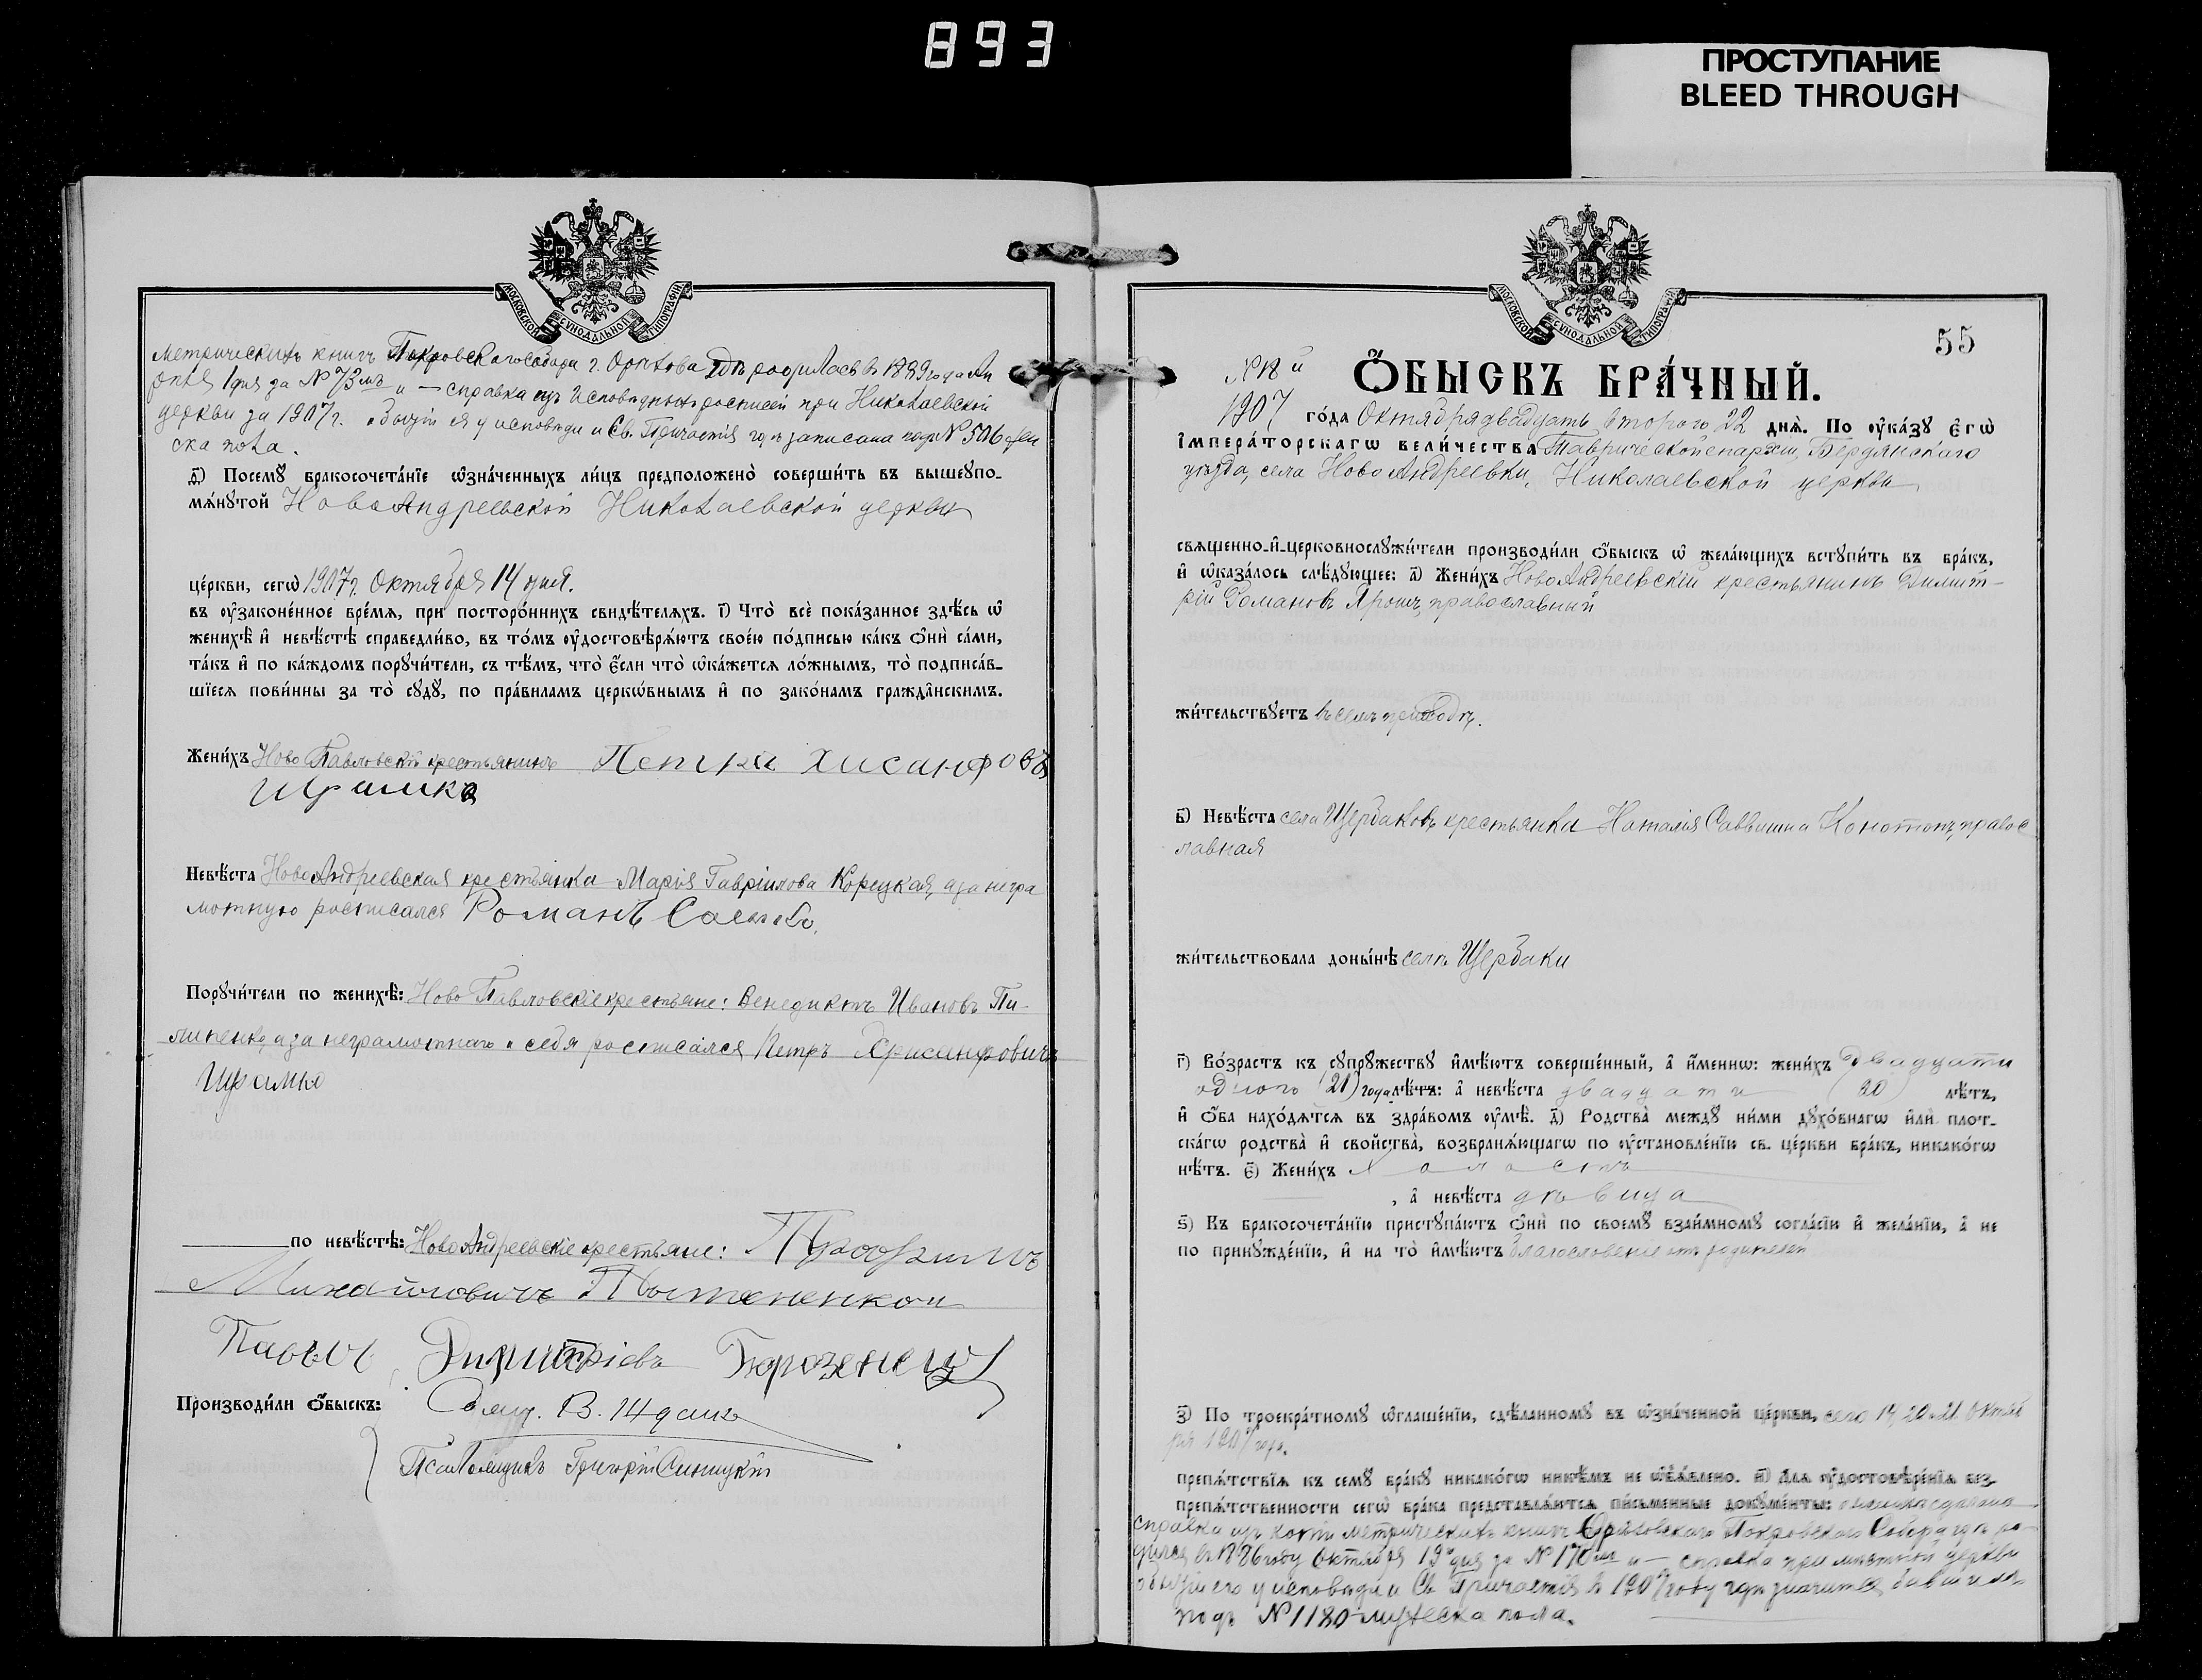 893
ПРОСТУПАНИЕ
BLEED THROUGH
МОСКОВСКОЙ СѴНОДАЛЬНОЙ ТИПОГРАФІИ
метрическихъ книгъ Покровскаго Собора г. Орѣхова гдѣ родилась въ 1889 года Ап
рѣля 1 дня за № 73мъ и — справка изъ Исповѣдныхъ росписей при Николаевской
церкви за 1907 г. о бытіи ея у исповѣди и Св. Причастія гдѣ записана подъ № 506 жен
ска пола.
д҃) Посемꙋ̀ бракосочета́нїе ѡ҆зна́ченныхъ ли́цъ предположено̀ соверши́ть въ вышеꙋпо-
мѧ́нꙋтой Ново Андреевской Николаевской церкви
це́ркви, сегѡ̀ 1907 г. Октября 14 дня.
въ ᲂу҆зако́ненное вре́мѧ, при посторо́ннихъ свидѣ́телѧхъ. г҃) Что̀ всѐ пока́занное здѣ́сь ѡ҆
женихѣ̀ и҆ невѣ́стѣ справедли́во, въ то́мъ ᲂу҆достовѣрѧ́ютъ свое́ю по́дписью ка́къ ѻ҆нѝ са́ми,
та́къ и҆ по ка́ждомъ порꙋчи́тели, съ тѣ́мъ, что̀ є҆́сли что̀ ѡ҆ка́жетсѧ ло́жнымъ, то̀ подписа́в-
шїесѧ пови́нны за то̀ сꙋдꙋ̀, по пра́виламъ церкѡ́внымъ и҆ по зако́намъ гражда̑нскимъ.
Жени́хъ Ново Павловскій крестьянинъ Петръ Хисанфовъ
Шрамко
Невѣ́ста Ново Андреевская крестьянка Марія Гавріилова Корецкая, а за негра
мотную росписался Романъ
Порꙋчи́тели по женихѣ̀: Ново Павловскіе крестьяне: Венедиктъ Ивановъ Пи-
липенко, а за неграмотнаго и себя росписался Петръ Хрисанфовичъ
Шрамко
по невѣ́стѣ: Ново Андреевскіе крестьяне: Трофимъ
Михайловичъ
Павелъ Димитріевъ
Производи́ли ѻ҆́быскъ: Свящ. В.
Псаломщикъ Григорій Синицкій
МОСКОВСКОЙ СѴНОДАЛЬНОЙ ТИПОГРАФІИ
55
№ 18й
Ѻ҆́БЫСКЪ БРА́ЧНЫЙ.
1907 го́да Октября двадцать второго 22 днѧ̀. По ᲂу҆ка́зꙋ Є҆гѡ̀
І҆мпера́торскагѡ вели́чества Таврической епархіи, Бердянскаго
уѣзда, села Ново Андреевки, Николаевской церкви
свѧщенно-и҆-церковнослꙋжи́тели производи́ли ѻ҆́быскъ ѡ҆ жела́ющихъ вступи́ть въ бра́къ,
и҆ ѡ҆каза́лось слѣ́дꙋющее: а҃) Жени́хъ Ново Андреевскій крестьянинъ Димит-
рій Романовъ Ярошъ, православный
жи́тельствꙋетъ въ семъ приходѣ.
б҃) Невѣ́ста села Щербаковъ крестьянка Наталія Саввишна Конотопъ, правос
лавная
жи́тельствовала доны́нѣ селѣ Щербаки
г҃) Во́зрастъ къ сꙋпрꙋ́жествꙋ и҆мѣ́ютъ соверше́нный, а҆ и҆́меннѡ: жени́хъ двадцати
одного (21) года лѣ́тъ: а҆ невѣ́ста двадцати (20) лѣ́тъ,
и҆ ѻ҆́ба нахо́дѧтсѧ въ здра́вомъ ᲂу҆мѣ̀. д҃) Родства̀ междꙋ̀ ни́ми дꙋхо́внагѡ и҆лѝ плот-
ска́гѡ родства̀ и҆ свойства̀, возбранѧ́ющагѡ по ᲂу҆становле́нїю св. це́ркви бра́къ, никако́гѡ
нѣ́тъ. є҃) Жени́хъ Холостъ
, а҆ невѣ́ста дѣвица
ѕ҃) Къ бракосочета́нїю приступа́ютъ ѻ҆нѝ по своемꙋ̀ взаи́мномꙋ согла́сїю и҆ жела́нїю, а҆ не
по принꙋжде́нїю, и҆ на то̀ и҆мѣ́ютъ благословеніе отъ родителей
з҃) По троекра́тномꙋ ѡ҆глаше́нїи, сдѣ́ланномꙋ въ ѡ҆зна́ченной це́ркви, сего 14, 20 и 21 Октяб
ря 1907 года.
препѧ́тствїѧ къ семꙋ̀ бра́кꙋ никако́гѡ никѣ́мъ не ѡ҆б̾ѧ́влено. и҃) Длѧ ᲂу҆достовѣре́нїѧ без-
препѧ́тственности сегѡ̀ бра́ка представлѧ́ютсѧ пи́сьменные докꙋме́нты:
справка изъ копіи метрическихъ книгъ Орѣховскаго Покровскаго Собора гдѣ ро
дился въ 1886 году Октября 19го дня за № 170мъ и — справка при мѣстной церкви
о бытіи его у исповѣди и Св. Причастія въ 1907 году гдѣ значится бывшимъ
подъ № 1180 мужеска пола.